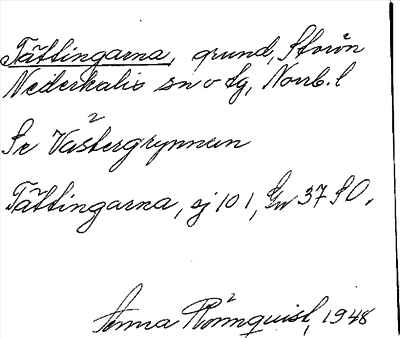 Tättingarna, grund, Storön
Nederkalix sn o tg, Norrb. l
Se Västergrynnan
Tättingarna, sj 101, Gw 37 SO.
Anna Rönnquist, 1948